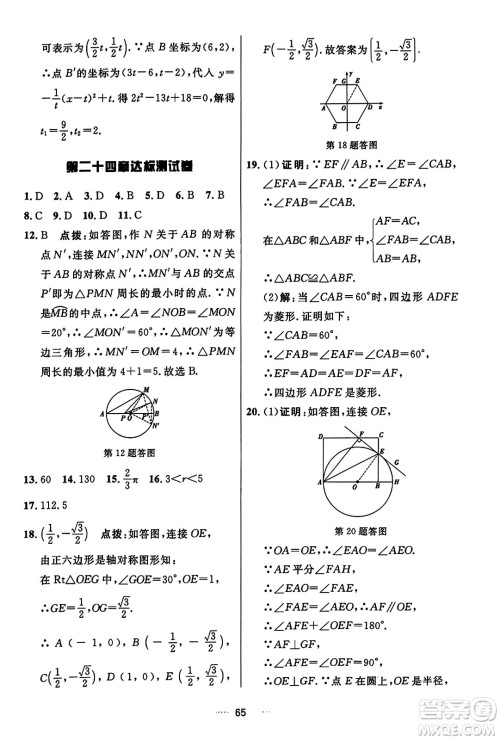 可表示为(3/2 t, 1/2 t). ∵点B的坐标为(6,2),
∴点B′的坐标为(3t-6,t-2),代入y=
-1/t(x-t)²+t,得t²-10t+18=0.解得
t₁=9/2,t₂=2.
第二十四章达标测试卷
1.D 2.A 3.C 4.B 5.A 6.D 7.B
8.C 9.D 10.D 11.C
12.B 点拨:如答图,作N关于AB的对称
点N′,连接MN′,NN′,ON′,ON.∵N
关于AB的对称点N′,∴MN′与AB的交点
P′即为△PMN周长的最小时的点.∵N
是MB的中点,∴∠NOB=∠MON
=20°,∴∠MON′=60°,∴△MON′为等
边三角形,∴MN′=OM=4,∴△PMN
周长的最小值为4+1=5.故选B.
M
N
A
P
P′
O
B
N′
第12题答图
13.60 14.130 15.2/3π 16.3<r<5
17.112.5
18.(1/2,-√3/2) 点拨:如答图,连接OE,
由正六边形是轴对称图形知:
在Rt△OEG中,∠GOE=30°,OE=1.
∴GE=1/2,OG=√3/2.
∴A(-1,0),B(-1/2,-√3/2),
C(1/2,-√3/2),D(1,0),E(1/2,√3/2),
F(-1/2,√3/2).故答案为(1/2,-√3/2).
y
F
G
E
A
O
D
x
B
C
第18题答图
19.(1)证明:∵EF∥AB,∴∠CAB=
∠EFA=∠FAB,∠E=∠EAB.∵∠E=
∠EFA,∴∠FAB=∠EAB.
在△ABC与△ABF中,{AF=AC,
∠FAB=∠CAB,
AB=AB,
∴△ABC≌△ABF.
(2)解:当∠CAB=60°时,四边形ADFE
为菱形.证明如下:
∵∠CAB=60°,∴∠FAB=∠CAB=60°,
∴EF=AD=AE=DF,
∴四边形ADFE是菱形.
20.(1)证明:如答图,连接OE,
D
F
C
E
A
O
B
H
G
第20题答图
∵OA=OE,∴∠EAO=∠AEO.
∵AE平分∠FAH,
∴∠EAO=∠FAE,∴∠FAE=∠AEO,
∴AF∥OE,∴∠AFE+∠OEF=180°.
∵AF⊥GF,
∴∠AFE=∠OEF=90°,
∴OE⊥GF.∵点E在圆上,OE是
65